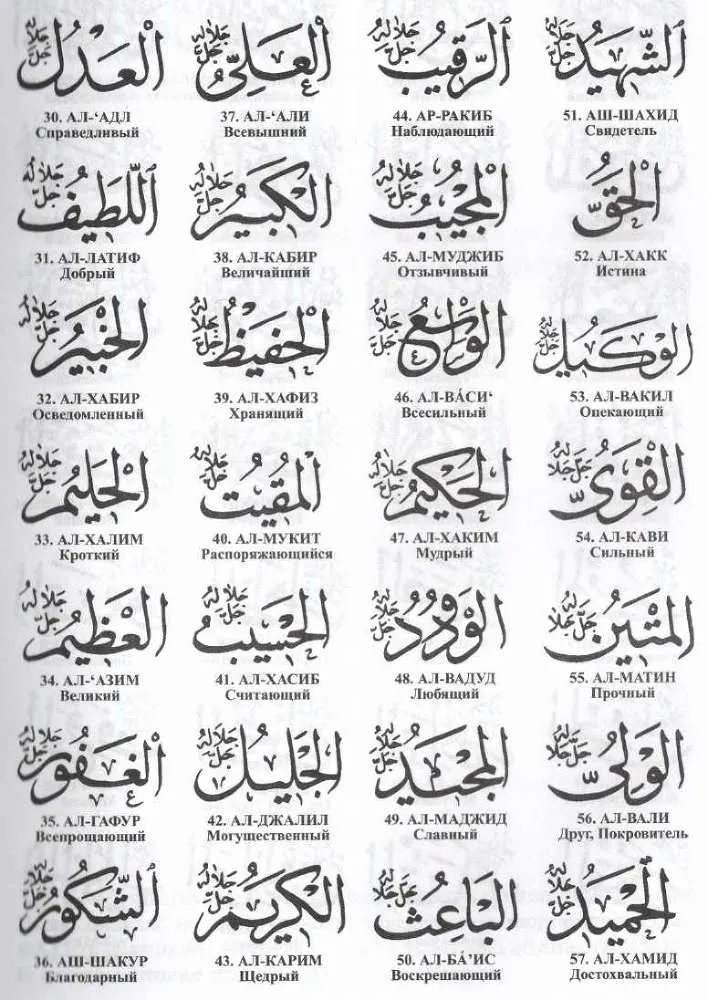 العدل جل جلاله
30. АЛ-‘АДЛ
Справедливый
اللطيف جل جلاله
31. АЛ-ЛАТИФ
Добрый
الخبير جل جلاله
32. АЛ-ХАБИР
Осведомленный
الحليم جل جلاله
33. АЛ-ХАЛИМ
Кроткий
العظيم جل جلاله
34. АЛ-‘АЗИМ
Великий
الغفور جل جلاله
35. АЛ-ГАФУР
Всепрощающий
الشكور جل جلاله
36. АШ-ШАКУР
Благодарный
العلي جل جلاله
37. АЛ-‘АЛИ
Всевышний
الكبير جل جلاله
38. АЛ-КАБИР
Величайший
الحفيظ جل جلاله
39. АЛ-ХАФИЗ
Хранящий
المقيت جل جلاله
40. АЛ-МУКИТ
Распоряжающийся
الحسيب جل جلاله
41. АЛ-ХАСИБ
Считающий
الجليل جل جلاله
42. АЛ-ДЖАЛИЛ
Могущественный
الكريم جل جلاله
43. АЛ-КАРИМ
Щедрый
الرقيب جل جلاله
44. АР-РАКИБ
Наблюдающий
المجيب جل جلاله
45. АЛ-МУДЖИБ
Отзывчивый
الواسع جل جلاله
46. АЛ-ВА́СИ‘
Всесильный
الحكيم جل جلاله
47. АЛ-ХАКИМ
Мудрый
الودود جل جلاله
48. АЛ-ВАДУД
Любящий
المجيد جل جلاله
49. АЛ-МАДЖИД
Славный
الباعث جل جلاله
50. АЛ-БА́’ИС
Воскрешающий
الشهيد جل جلاله
51. АШ-ШАХИД
Свидетель
الحق
52. АЛ-ХАКК
Истина
الوكيل جل جلاله
53. АЛ-ВАКИЛ
Опекающий
القوي جل جلاله
54. АЛ-КАВИ
Сильный
المتين جل جلاله
55. АЛ-МАТИН
Прочный
الولي جل جلاله
56. АЛ-ВАЛИ
Друг, Покровитель
الحميد جل جلاله
57. АЛ-ХАМИД
Достохвальный